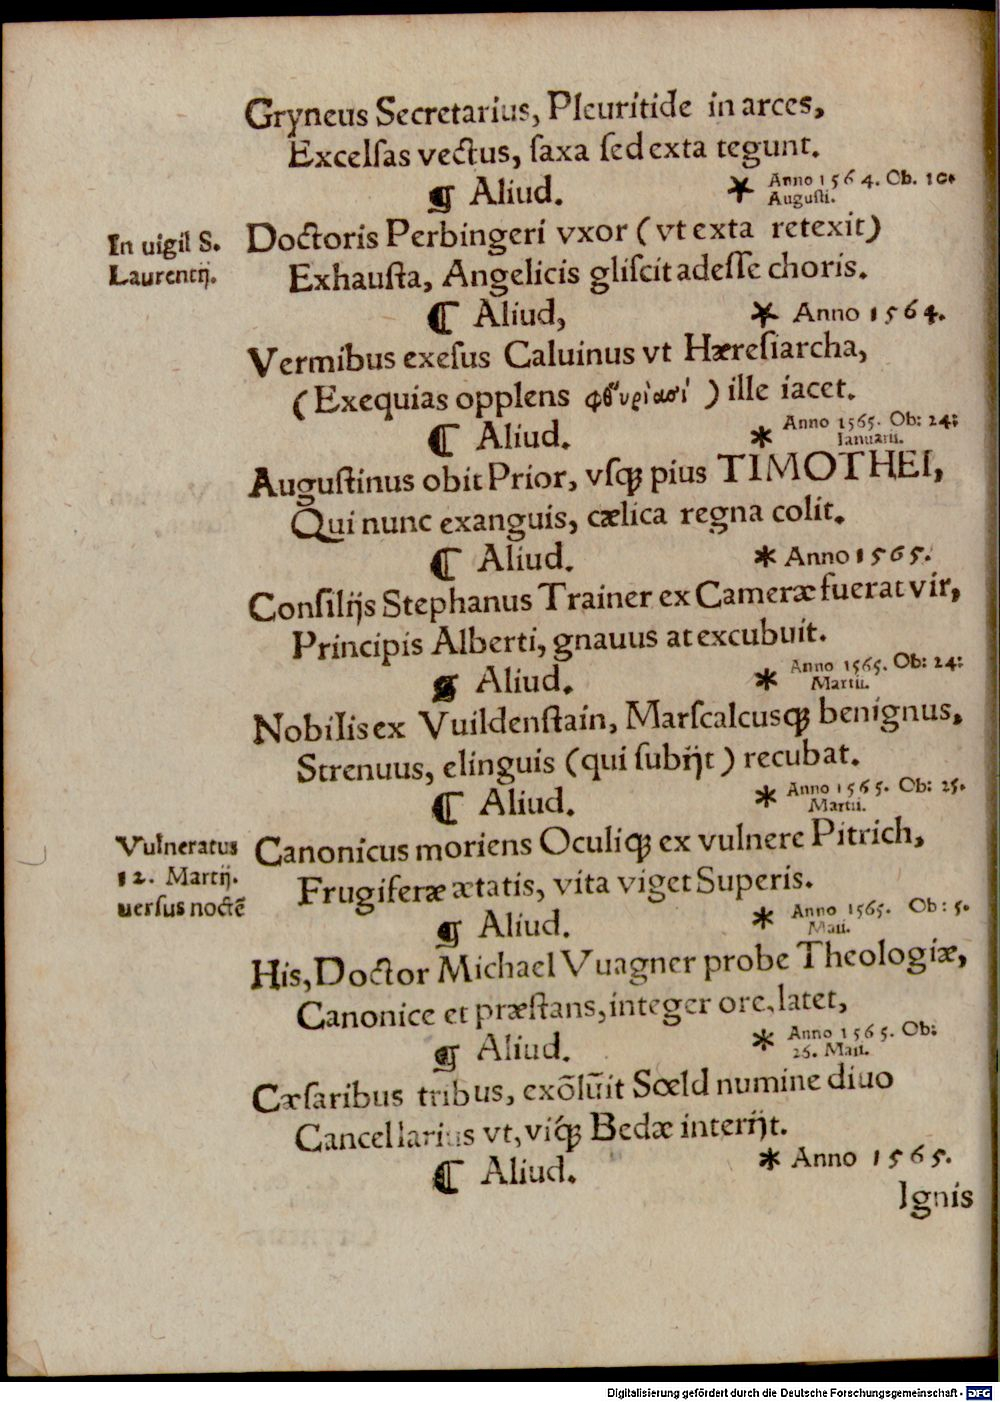 Gryneus Secretarius, Pleuritide in arces,
Excelsas vectus, saxa sed exta tegunt.
¶ Aliud. * Anno 1564. Ob. 10.
Augusti.
In uigil S.
Laurentij.
Doctoris Perbingeri vxor ( vt exta retexit )
Exhausta, Angelicis gliscit adesse choris.
¶ Aliud, * Anno 1564.
Vermibus exesus Caluinus vt Hæresiarcha,
( Exequias opplens ) ille iacet.
¶ Aliud. * Anno 1565. Ob: 24:
Ianuarii.
Augustinus obit Prior, vsq; pius TIMOTHEI,
Qui nunc exanguis, cælica regna colit.
¶ Aliud. * Anno 1565.
Consilijs Stephanus Trainer ex Cameræ fuerat vir,
Principis Alberti, gnauus at excubuit.
¶ Aliud. * Anno 1565. Ob: 24:
Martii.
Nobilis ex Vuildenstain, Marscalcusq; benignus,
Strenuus, elinguis ( qui subijt ) recubat.
¶ Aliud. * Anno 1565. Ob: 25.
Martii.
Vulneratus
12. Martij.
uersus noctē
Canonicus moriens Oculiq; ex vulnere Pitrich,
Frugiferæ ætatis, vita viget Superis.
¶ Aliud. * Anno 1565. Ob: 5.
Maii.
His, Doctor Michael Vuagner probe Theologiæ,
Canonice et præstans, integer ore, latet,
¶ Aliud. * Anno 1565. Ob:
26. Maii.
Cæsaribus tribus, exõlũit Sœld numine diuo
Cancellarius vt, vicq; Bedæ interijt.
¶ Aliud. * Anno 1565.
Ignis
Digitalisierung gefördert durch die Deutsche Forschungsgemeinschaft - DFG